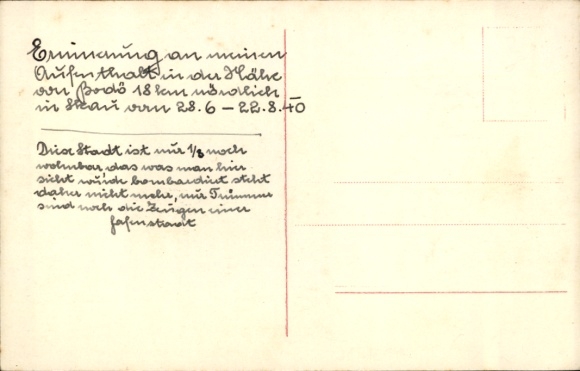 Erinnerung an meinen
Aufenthalt in der Nähe
von Bodö 18 km nördlich
in Skau vom 28.6 – 22.8.40
Diese Stadt ist nur 1/8 noch
wohnbar, das was man hier
sieht würde bombardiert steht
daher nicht mehr, nur Trümmer
sind noch die Zeugen einer
Hafenstadt